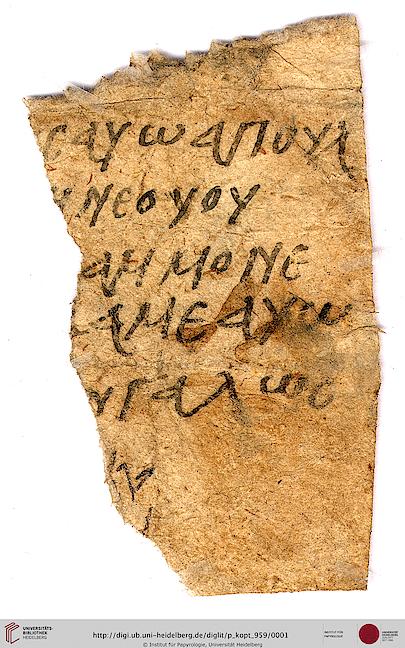 ⲥⲁⲩⲱⲁⲡⲟⲩⲁ
ⲩⲛⲉⲟⲩⲟⲩ
ⲁⲙⲙⲟⲛⲉ
ⲁⲙⲉⲁⲩⲱ
ⲛⲅⲁⲗⲱⲥ
UNIVERSITÄTS-
BIBLIOTHEK
HEIDELBERG
http://digi.ub.uni-heidelberg.de/diglit/p_kopt_959/0001
© Institut für Papyrologie, Universität Heidelberg
INSTITUT FÜR
PAPYROLOGIE
UNIVERSITÄT
HEIDELBERG